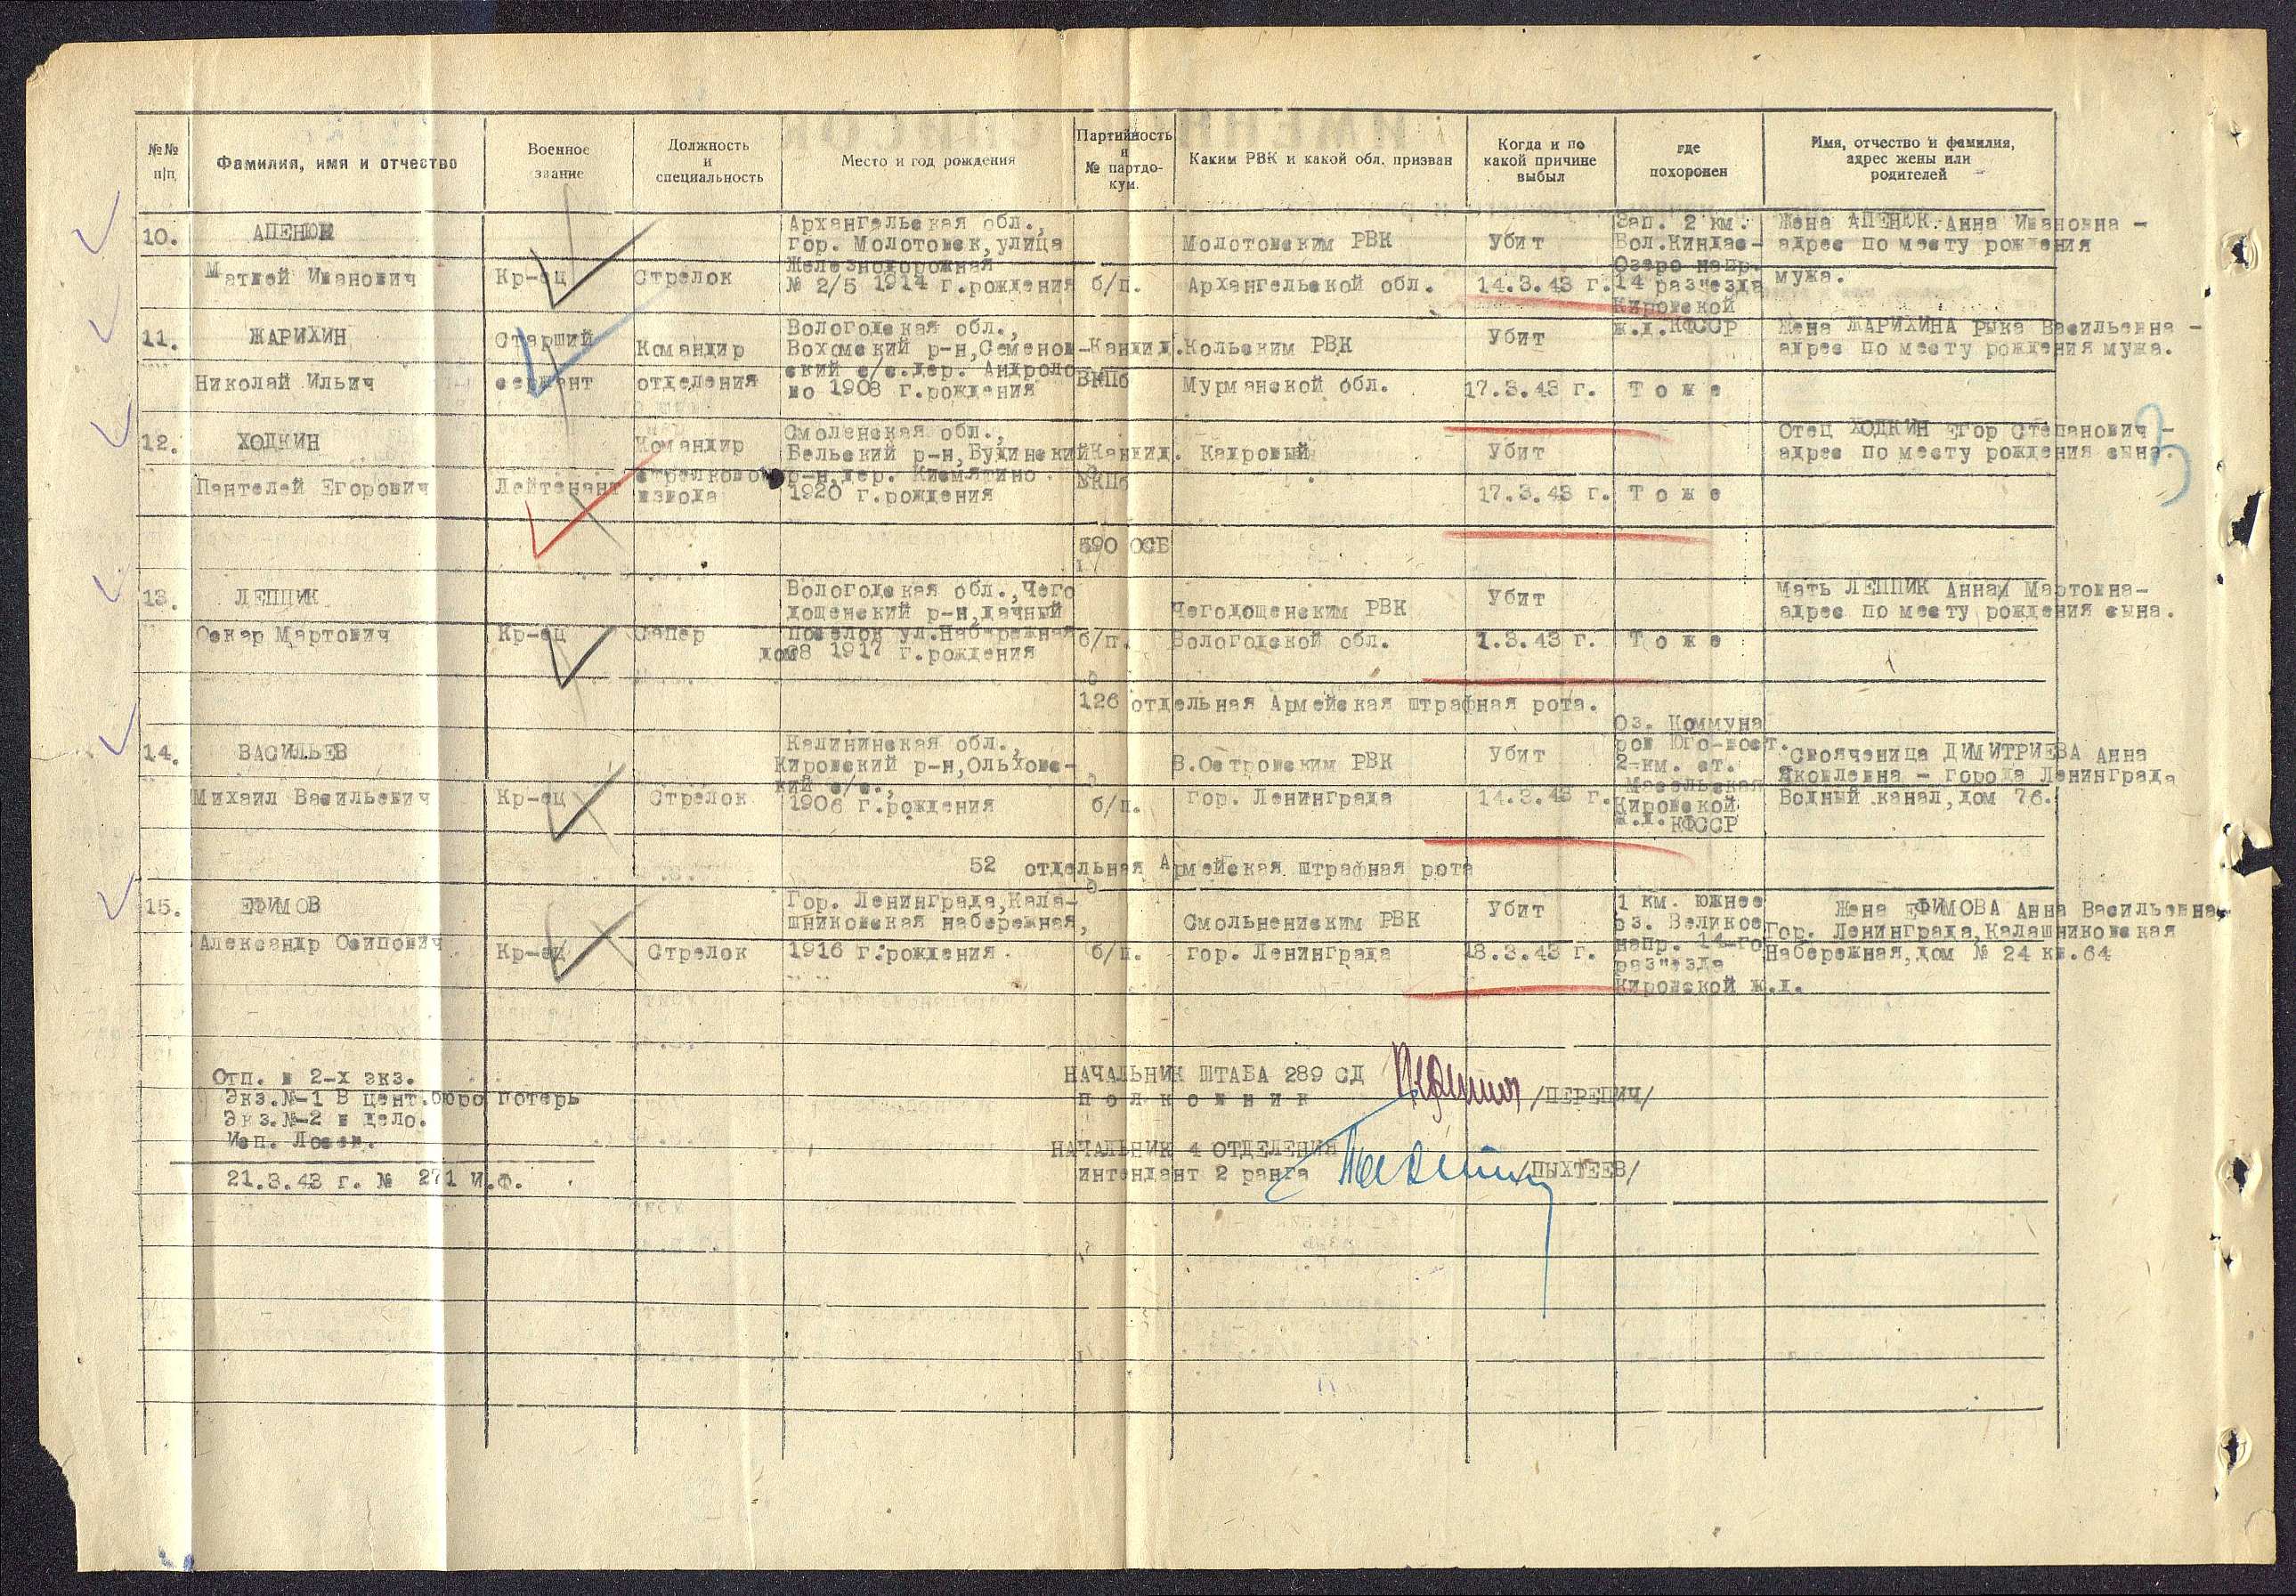 №№ п/п
Фамилия, имя и отчество
Военное звание
Должность и специальность
Место и год рождения
Партийность и № партдокум.
Каким РВК и какой обл. призван
Когда и по какой причине выбыл
где похоронен
Имя, отчество и фамилия, адрес жены или родителей
10.
АПЕНЮК
Матвей Иванович
Кр-ец
Стрелок
Архангельская обл.,
гор. Молотовск, улица
Железнодорожная
№ 2/5 1914 г.рождения
б/п.
Молотовским РВК
Архангельской обл.
Убит
14.3.43 г.
Зап. 2 км.
Озеро напр.
14 раз"езда
Кировской
ж.д. КФССР
Жена АПЕНЮК Анна Ивановна -
адрес по месту рождения
мужа.
11.
ЖАРИХИН
Николай Ильич
Старший
сержант
Командир
отделения
Вологодская обл.,
Вохомский р-н, Семенов-
ский с/с. дер. Андроно
во 1908 г.рождения
Кандид.
ВКПб
Кольским РВК
Мурманской обл.
Убит
17.3.43 г.
Т о ж е
Жена ЖАРИХИНА Рыка Васильевна -
адрес по месту рождения мужа.
12.
ХОДКИН
Пантелей Егорович
Лейтенант
Командир
стрелкового
взвода
Смоленская обл.,
Бельский р-н, Будинский
р-н, дер. Кисмятино
1920 г.рождения
Кандид.
ВКПб
Кадровый
Убит
17.3.43 г.
Т о ж е
Отец ХОДКИН Егор Степанович -
адрес по месту рождения сына.
590 ОСБ
13.
ЛЕППИК
Оскар Мартович
Кр-ец
Сапер
Вологодская обл., Чего
дощенский р-н, дачный
поселок ул. Набережная
дом 28 1917 г.рождения
б/п.
Чегодощенским РВК
Вологодской обл.
Убит
1.3.43 г.
Т о ж е
Мать ЛЕППИК Анна Мартовна-
адрес по месту рождения сына.
126 отдельная Армейская штрафная рота.
14.
ВАСИЛЬЕВ
Михаил Васильевич
Кр-ец
Стрелок
Калининская обл.,
Кировский р-н, Ольховс-
кий с/с.,
1906 г.рождения
б/п.
В.Островским РВК
гор. Ленинграда
Убит
14.3.43 г.
Оз. Коммуна
ров Юго-вост.
2-км. ст.
Масельская
Кировской
ж.д. КФССР
Свояченица ДИМИТРИЕВА Анна
Яковлевна - города Ленинграда
Водный канал, дом 76.
52 отдельная Армейская штрафная рота
15.
ЕФИМОВ
Александр Осипович
Кр-ец
Стрелок
Гор. Ленинграда, Кала-
шниковская набережная,
1916 г.рождения.
б/п.
Смольненским РВК
гор. Ленинграда
Убит
18.3.43 г.
1 км. южнее
оз. Великое
напр. 14-го
раз"езда
Кировской ж.д.
Жена ЕФИМОВА Анна Васильевна
Гор. Ленинграда, Калашниковская
Набережная, дом № 24 кв.64
Отп. в 2-х экз.
Экз.№-1 В цент.бюро потерь
Экз.№-2 в дело.
21.3.43 г. № 271 И.Ф.
НАЧАЛЬНИК ШТАБА 289 СД
п о л к о в н и к /ПЕРЕПИЧ/
НАЧАЛЬНИК 4 ОТДЕЛЕНИЯ
интендант 2 ранга /ПЫХТЕЕВ/